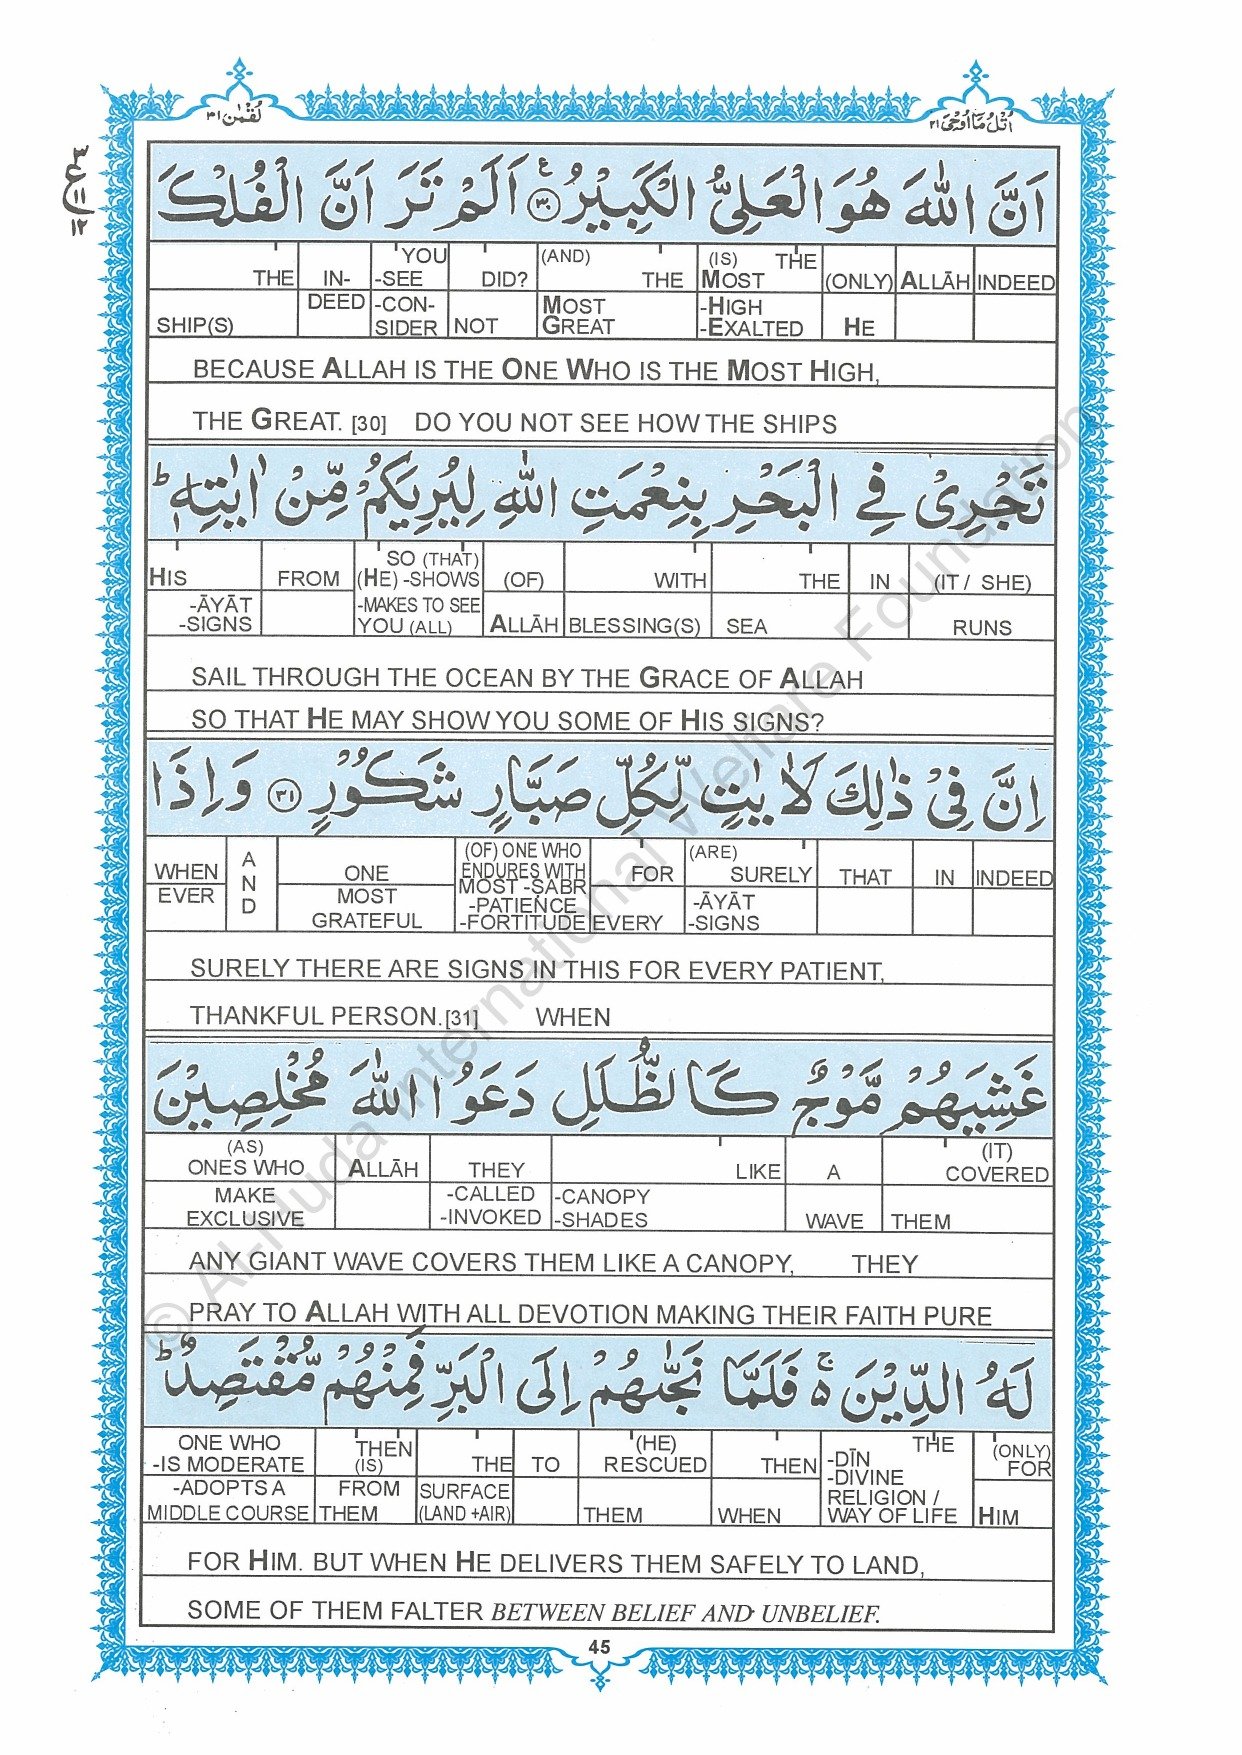 لُقْمٰن ٣١
اُتْلُ مَا اُوْحِیَ ٢١
٣
ع
١١
١٢
اَنَّ اللّٰهَ هُوَ الْعَلِیُّ الْكَبِیْرُ ﴿٣٠﴾ اَلَمْ تَرَ اَنَّ الْفُلْكَ
THE IN- YOU -SEE DID? (AND) THE (IS) THE MOST (ONLY) ALLĀH INDEED
SHIP(S) DEED -CON- SIDER NOT MOST GREAT -HIGH -EXALTED HE
BECAUSE ALLAH IS THE ONE WHO IS THE MOST HIGH,
THE GREAT. [30] DO YOU NOT SEE HOW THE SHIPS
تَجْرِیْ فِی الْبَحْرِ بِنِعْمَتِ اللّٰهِ لِیُرِیَكُمْ مِّنْ اٰیٰتِهٖ ؕ
HIS FROM SO (THAT) (HE) -SHOWS (OF) WITH THE IN (IT / SHE)
-ĀYĀT -SIGNS -MAKES TO SEE YOU (ALL) ALLĀH BLESSING(S) SEA RUNS
SAIL THROUGH THE OCEAN BY THE GRACE OF ALLAH
SO THAT HE MAY SHOW YOU SOME OF HIS SIGNS?
اِنَّ فِیْ ذٰلِكَ لَاٰیٰتٍ لِّكُلِّ صَبَّارٍ شَكُوْرٍ ﴿٣١﴾ وَاِذَا
WHEN AND ONE (OF) ONE WHO ENDURES WITH FOR (ARE) SURELY THAT IN INDEED
EVER MOST GRATEFUL MOST -SABR -PATIENCE -FORTITUDE EVERY -ĀYĀT -SIGNS
SURELY THERE ARE SIGNS IN THIS FOR EVERY PATIENT,
THANKFUL PERSON.[31] WHEN
غَشِیَهُمْ مَّوْجٌ كَالظُّلَلِ دَعَوُا اللّٰهَ مُخْلِصِیْنَ
(AS) ONES WHO ALLĀH THEY LIKE A (IT) COVERED
MAKE EXCLUSIVE -CALLED -INVOKED -CANOPY -SHADES WAVE THEM
ANY GIANT WAVE COVERS THEM LIKE A CANOPY, THEY
PRAY TO ALLAH WITH ALL DEVOTION MAKING THEIR FAITH PURE
لَهُ الدِّیْنَ ۵ۚ فَلَمَّا نَجّٰىهُمْ اِلَی الْبَرِّ فَمِنْهُمْ مُّقْتَصِدٌ ؕ
ONE WHO -IS MODERATE THEN (IS) THE TO (HE) RESCUED THEN THE -DĪN -DIVINE (ONLY) FOR
-ADOPTS A MIDDLE COURSE FROM THEM SURFACE (LAND +AIR) THEM WHEN RELIGION / WAY OF LIFE HIM
FOR HIM. BUT WHEN HE DELIVERS THEM SAFELY TO LAND,
SOME OF THEM FALTER BETWEEN BELIEF AND UNBELIEF.
45
© Al-Huda International Welfare Foundation